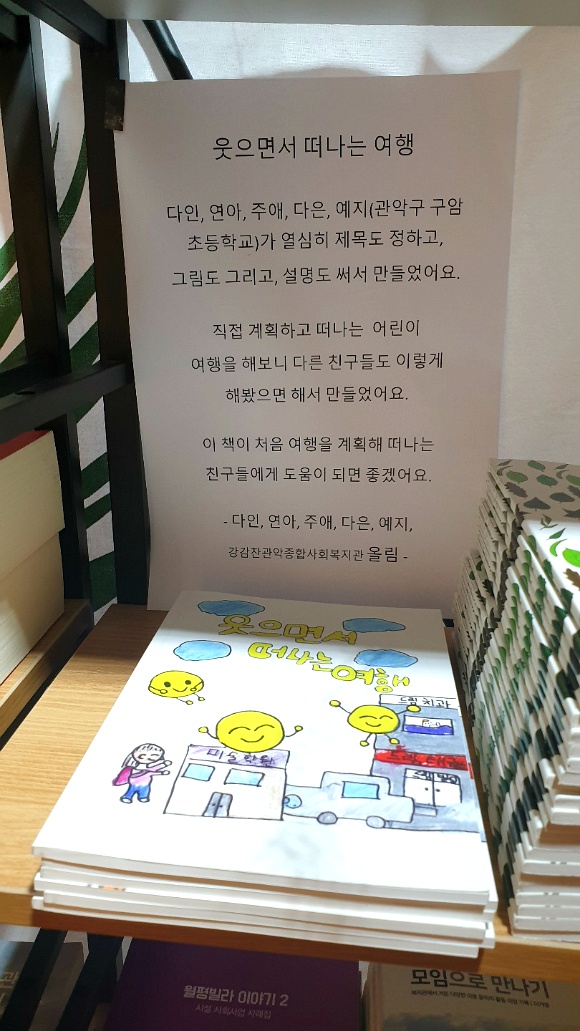 웃으면서 떠나는 여행
다인, 연아, 주애, 다은, 예지(관악구 구암
초등학교)가 열심히 제목도 정하고,
그림도 그리고, 설명도 써서 만들었어요.
직접 계획하고 떠나는 어린이
여행을 해보니 다른 친구들도 이렇게
해봤으면 해서 만들었어요.
이 책이 처음 여행을 계획해 떠나는
친구들에게 도움이 되면 좋겠어요.
- 다인, 연아, 주애, 다은, 예지,
강감찬관악종합사회복지관 올림 -
웃으면서
떠나는여행
치과
미술학원
월평빌라 이야기 2
시설 사회사업 사례집
모임으로 만나기